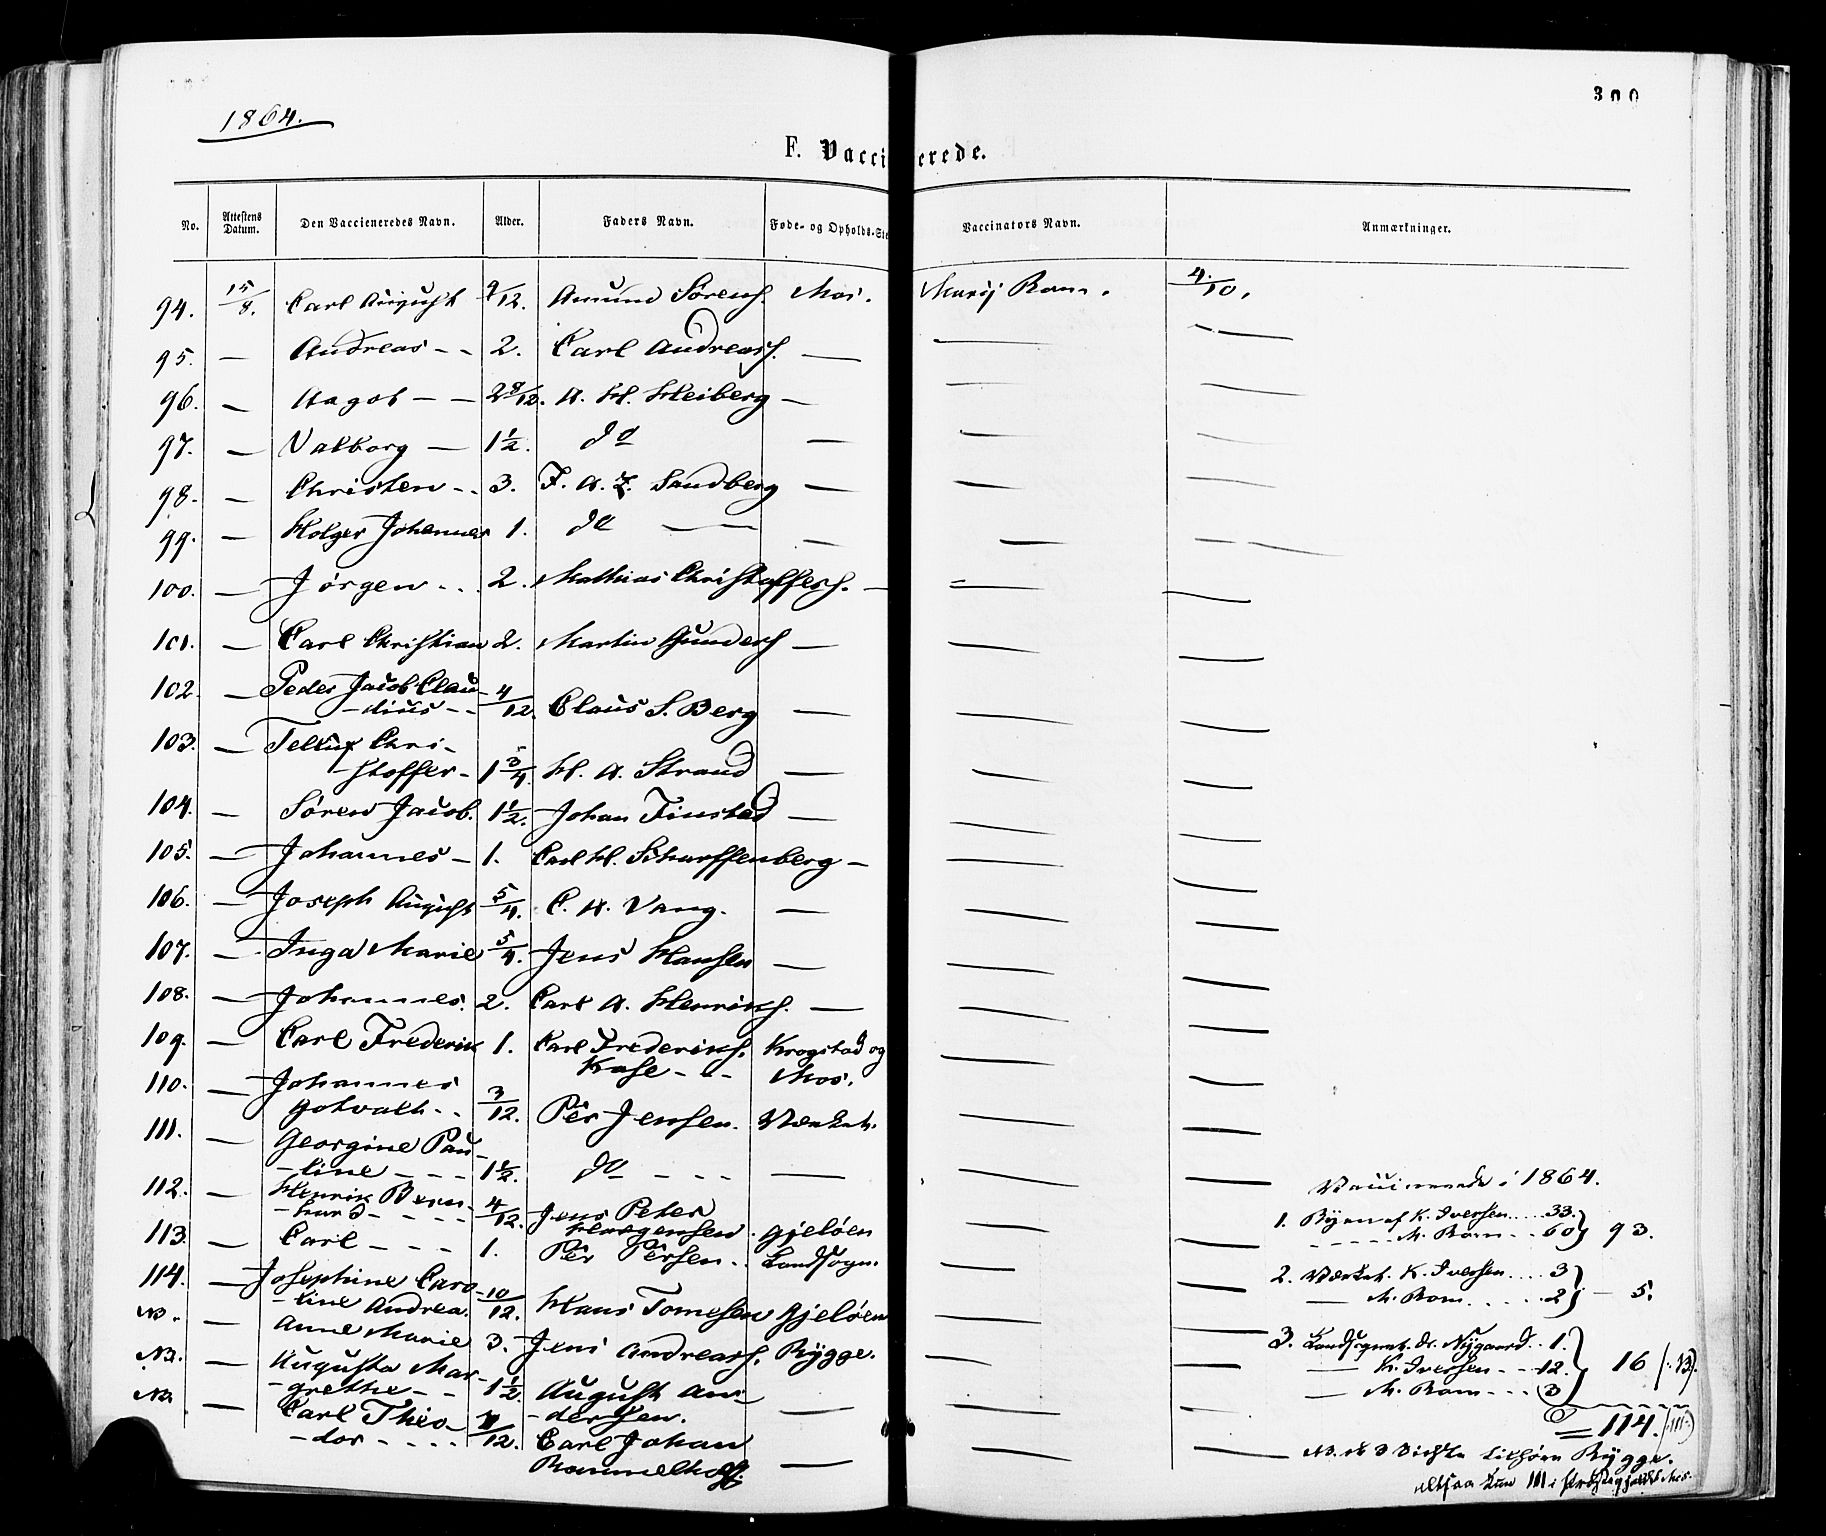 300
1864.
F. Vaccinerede.
No. Attestens Datum. Den Vaccineneredes Navn. Alder. Faders Navn. Føde- og Opholds-Ste Vaccinators Navn. Anmærkninger.
94. 15/8. Carl August 9/12. Amund Sørens. Mos. Marij Ram. 4/10.
95. — Andreas - - 2. Carl Andreass. —
96. — Aagot — — 2 8/12. A. H. Heiberg —
97. — Valborg — 1 1/2. do —
98. — Christen - - 3. F. A. Z. Sandberg —
99. — Holger Johannes 1. do — —
100. — Jørgen - - . 2. Mathias Christoffers. —
101. — Carl Christian 2. Martin Gunders —
102. — Peder Jacob Clau-
-dius - - 4/12. Claus S. Berg —
103. — Tellef Chri-
-stoffer - 1 3/4. H. A. Strand —
104. — Søren Jacob. 1 1/2. Johan Finstad —
105. — Johannes - 1. Carl H. Scharffenberg —
106. — Joseph August 5/4. C. A. Vang. —
107. — Inga Marie 5/4. Jens Hansen —
108. — Johannes. 2. Carl A. Henriks. —
109. — Carl Frederik 1. Carl Frederiks. Krogstad og
Kase - - - Mos.
110. — Johannes
Gotvalt - - 3/12. Per Jensen. Værket.
111. — Georgine Pau-
-line - - - 1 1/2. do - - - —
112. — Henrik Bern-
-hard - - - - 4/12. Jens Peter
Horgensen. Gjeløen
113. — Carl - - - - 1. Per Persen - . Landsogn.
114. — Josephine Caro-
-line Andrea. 10/12. Hans Tomesen Gjeløen
NB. — Anne Marie 3. Jens Andreass. Rygge.
NB. — Augusta Mar-
-grethe - - 1 1/2. August An-
-dersen. —
NB. — Carl Theo-
-dor - - - - /12. Carl Johan
—
Vaccinerede i 1864.
1. Byen af K. Iversen .... 33.
- - - - - M. Ram - - 60 } 93.
2. Værket. K. Iversen .... 3
— M. Ram. - - - - - 2 } — 5.
3. Landsognet. dr. Nygaard - - 1.
— K. Iversen - - - 12.
— M. Ram - - - (3) } 16 (: 13).
= 114. (111)
NB. de 3 sidste tilhøre Rygge.
altsaa kun 111 i Mos.